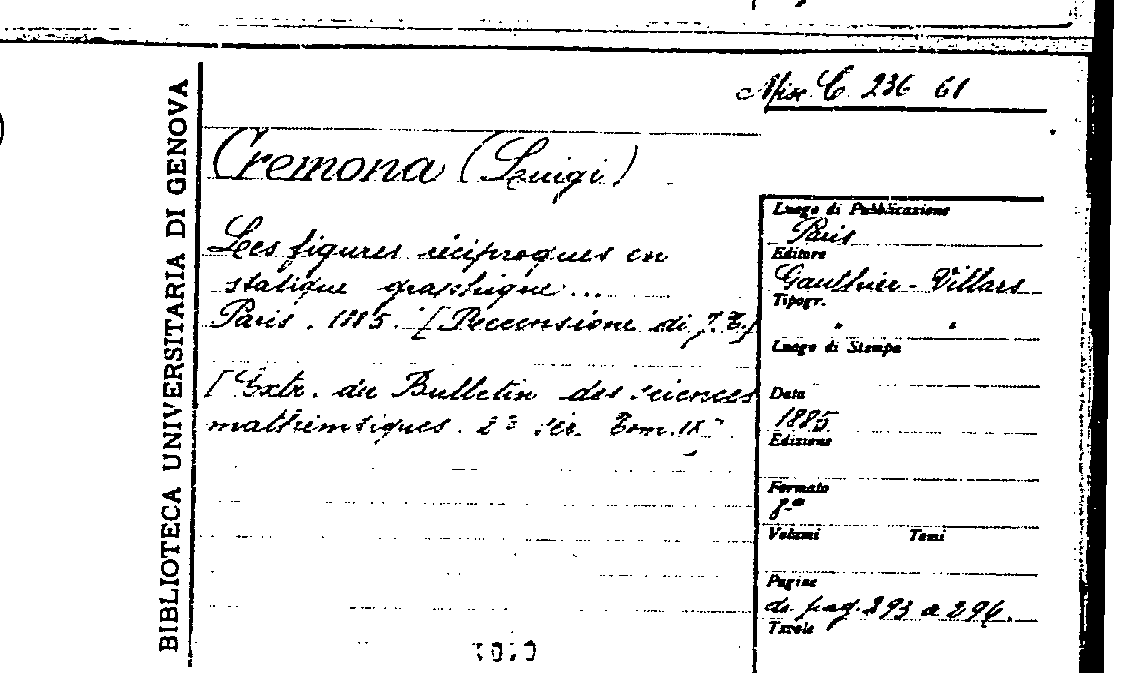 BIBLIOTECA UNIVERSITARIA DI GENOVA
Misc C. 236 61
Cremona (Luigi)
Les figures réciproques en
statique graphique...
Paris. 1885. [Reccensione di J. T.]
[Extr. du Bulletin des sciences
mathémtiques. 2e sér. Tom. IX]
Luogo di Pubblicazione
Paris
Editore
Gauthier-Villars
Tipogr.
" "
Luogo di Stampa
Data
1885
Edizione
Formato
8°
Volumi Tomi
Pagine
da pag. 293 a 296.
Tavole